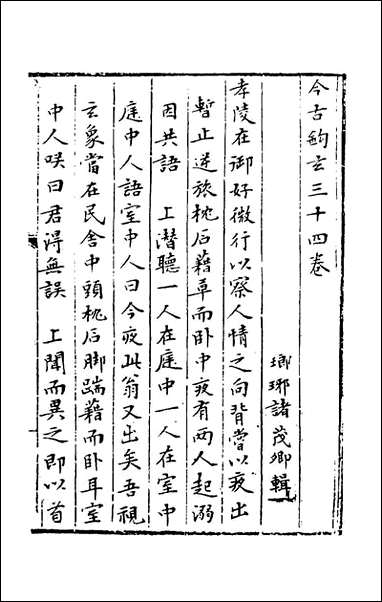 今古鉤玄三十四卷
瑯琊諸茂卿輯
孝陵在御好微行以察人情之向背嘗以夜出
暫止逆旅枕石藉草而卧中夜有两人起溺
因共語　上潛聽一人在庭中一人在室中
庭中人語室中人曰今夜此翁又出矣吾視
玄象當在民舍中頭枕石脚踹藉而卧耳室
中人咲曰君得無誤　上聞而異之即以首